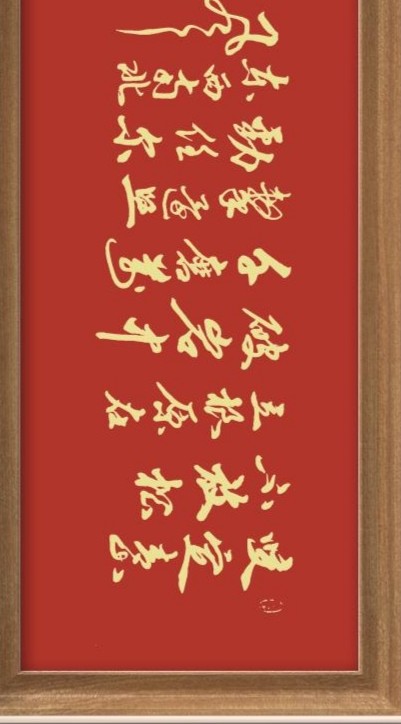 咬定青
山不放松
立根原在
破岩中
千磨萬
擊還堅
勁任尔
东西南北
风